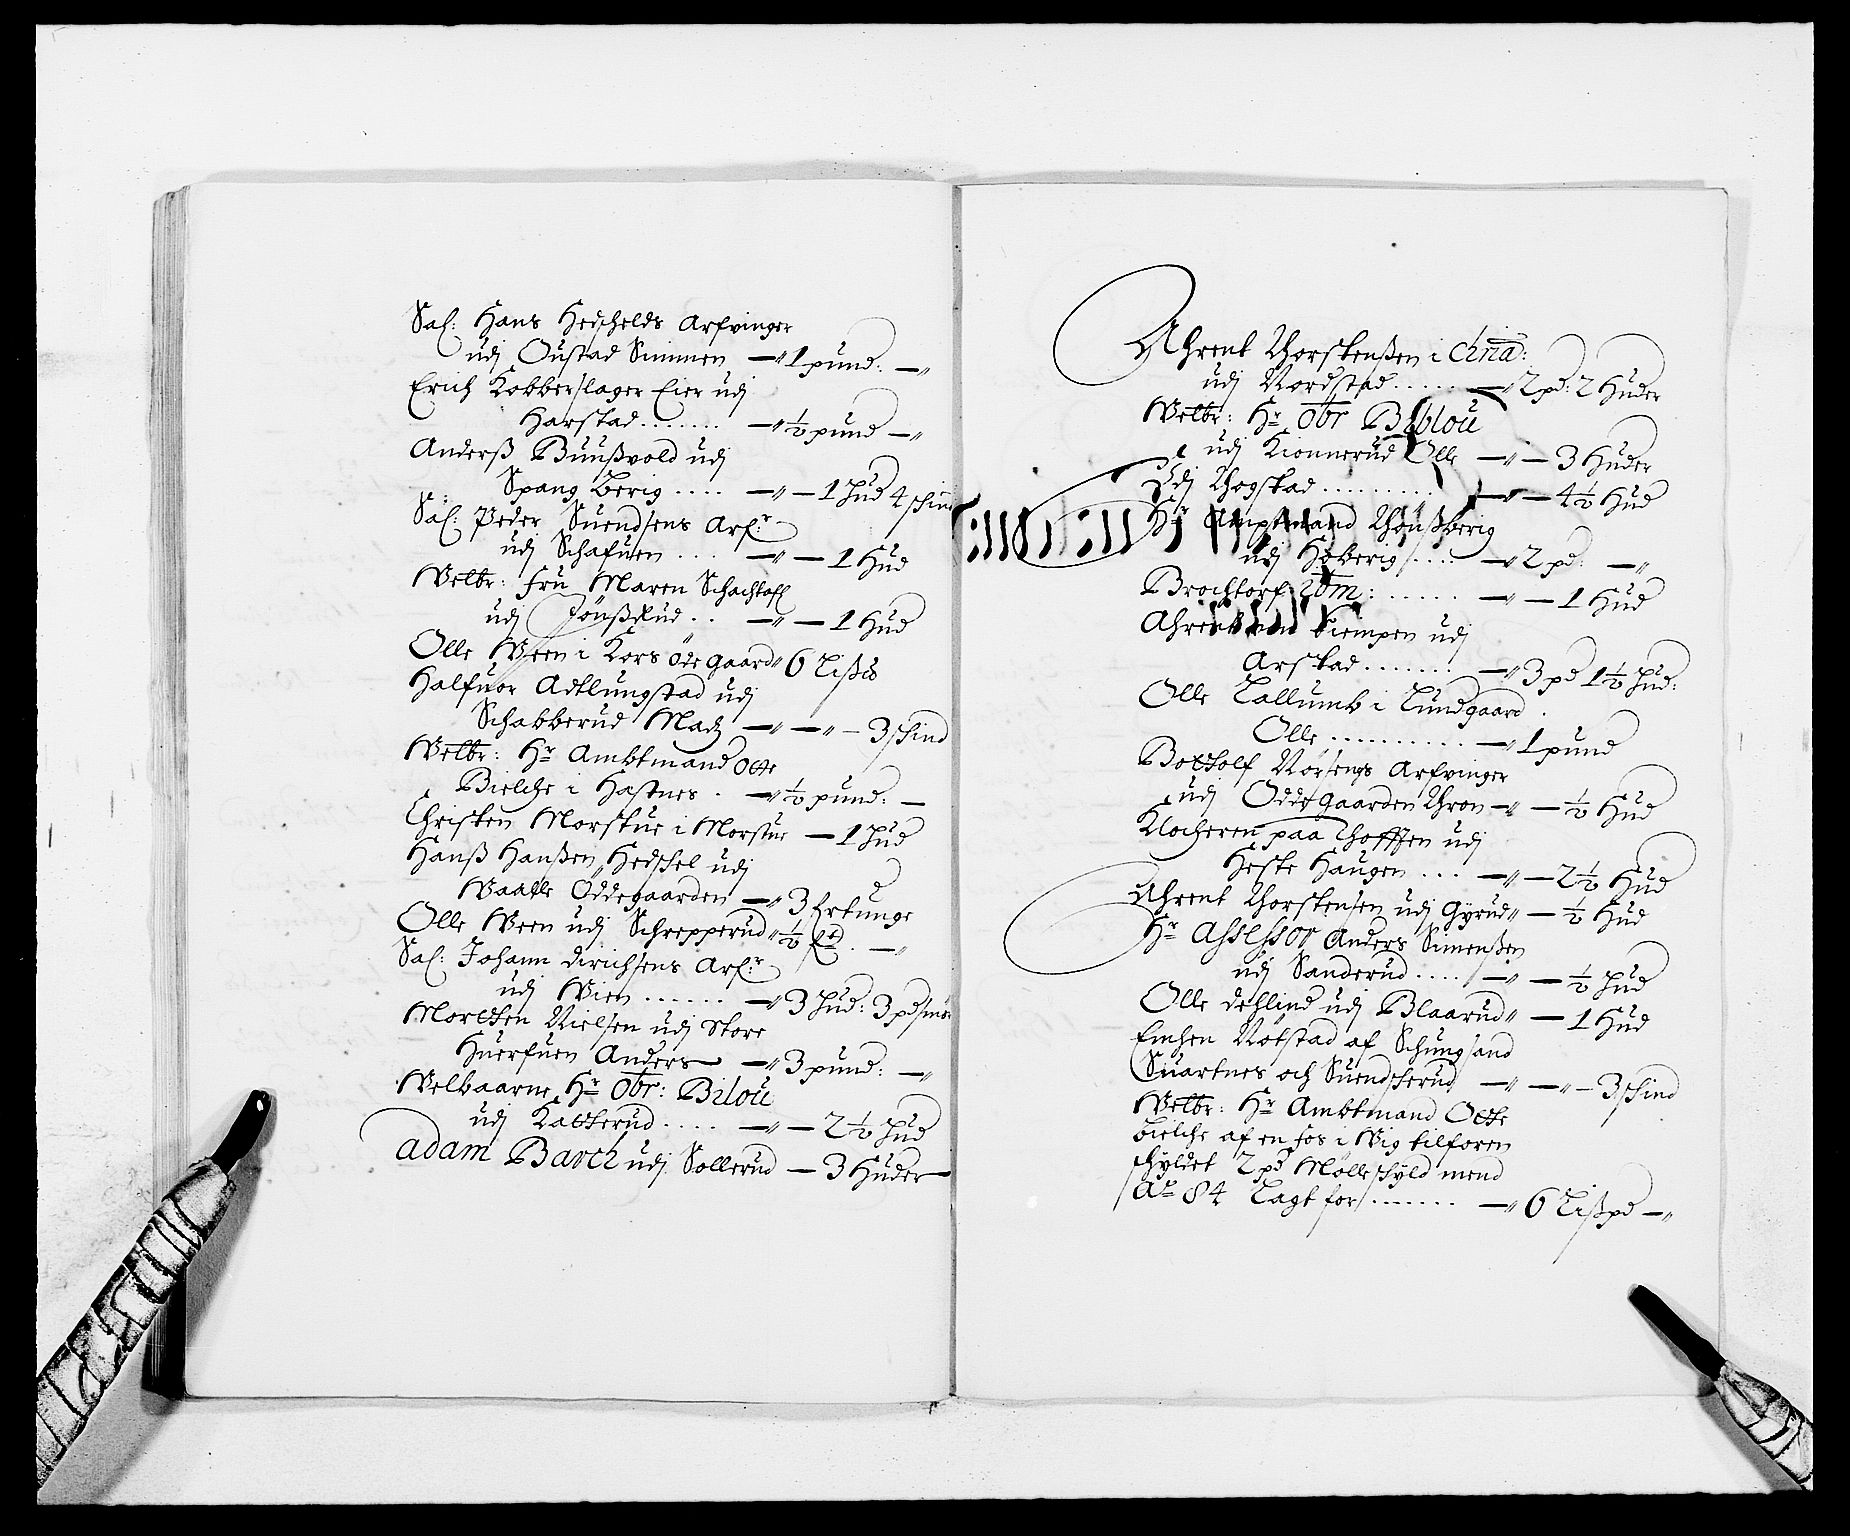 Sal: Hans Hedschelds Arfvinger
udj Oustad Simmen —„ 1 pund: —„
Erich Kobberslager Eier udj
Harstad....... —„ ½ pund —„
Anderß Buußvold udj
Spang Berig .... —„— 1 Hud 4 schind
Sal: Peder Suendsens Arf:r
udj Schafuen ... —„— 1 Hud
Welbr: Fru Maren Schachtafl
udj Jönußrud .. —„— 1 Hud
Olle Ween i Kors öde gaard „ 6 Liß℔
Halfuor Adtlungstad udj
Schabberud Madz —„—„— 3 schind
Welbr: Hr Ambtmand Otte
Bielche i Hastnes . —„ ½ pund: —
Christen Morstue i Morstue — 1 Hud
Hanß Hanßen Hedschel udj
Waalle Öddegaarden —„ 3 Fertunge
Olle Ween udj Schrepperud „ ½ . —„
Sal: Johann Dirichsens Arf:r
udj Wien ...... —„ 3 Hud: 3 pd
Morthen Nielsen udj Store
Huerfuen Anders —„ 3 pund: —„
Welbaarne Hr Obr: Bilou
udj Katterud .... —„— 2½ Hud
Adam Barch udj Sollerud — 3 Huder
Ahrent Thorstenßen i Christ:
udj Nordstad ..... —„ 2 pd: 2 Huder
Welbr: Hr Obr Bilou
udj Kionnerud Olle —„— 3 Huder
Udj Thogstad ......... —„— 4½ Hud
Hr Amptmand Thönßberig
udj Hoberig .... —„ 2 pd: —„
Brochtorf : ...... —„— 1 Hud
Ahrent von Kiempen udj
Arstad ....... —„ 3 pd 1½ Hud:
Olle Tallumb i Lundgaard
Olle .......... —„ 1 pund
Botholf Norsengs Arfvinger
udj Oddegaarden Thron —„— ½ Hud
Klocheren paa Thoffen udj
Heste Haugen ... —„— 2½ Hud
Ahrent Thorstensen udj Gyrud „— ½ Hud
Hr Assessor Anders Simenßen
udj Sanderud .... —„— ½ Hud
Olle Dehlind udj Blaarud „— 1 Hud
Emhen Nötstad af Schungsand
Suartnes och Suendsherud —„—„— 3 schind
Welbr: Hr Ambtmand Otte
Bielche af en Fos i Wig tilforen
schyldet 2 pd Mölleschyld mend
Ao 84 Lagt for ....... —„ 6 Lißpd —„